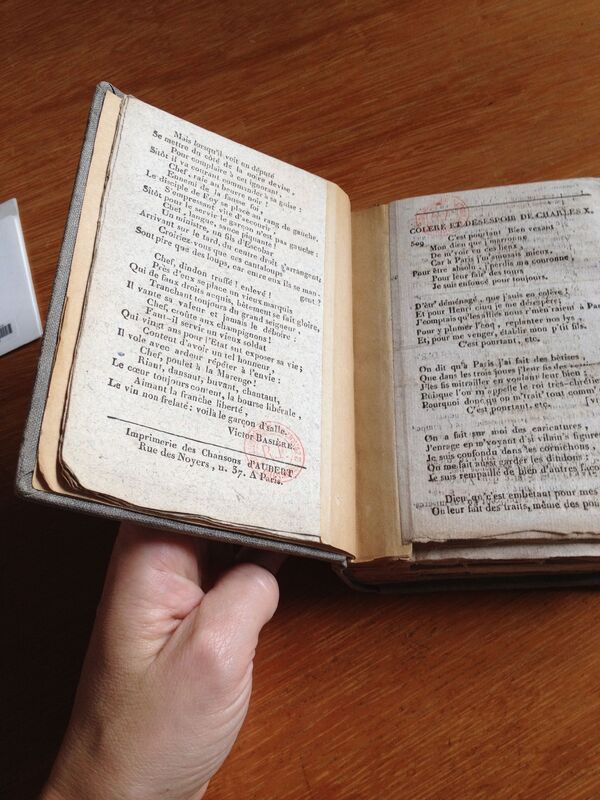 Mais lorsqu'il voit un député
Se mettre du côté de la noire devise,
Pour complaire à cet ignorant,
Sitôt il va courant commander à sa guise :
Chef, raie au beurre noir !
Ennemi de la fausse foi,
Le disciple de Foy se place au rang de gauche,
S'empressant vite et accort,
Sitôt pour le servir le garçon n'est pas gauche :
Chef, langue, sauce piquante !
Un ministre, un fils d'Escobar
Arrivant sur le tard, de centre droit s'arrangent,
Croiriez-vous que ces cantaloups
Sont pire que des loups, car entre eux ils se mangent
Chef, dindon truffé ! enlevé !
Près d'eux se place un vieux marquis
Qui de faux droits acquis, bêtement se fait gloire,
Tranchant toujours du grand seigneur,
Il vante sa valeur et jamais le déboire :
Chef, croûte aux champignons !
Faut-il servir un vieux soldat
Qui vingt ans pour l'Etat sut exposer sa vie;
Content d'avoir un tel honneur,
Il vole avec ardeur répéter à l'envie :
Chef, poulet à la Marengo !
Riant, dansant, buvant, chantant,
Le cœur toujours content, la bourse libérale,
Aimant la franche liberté,
Le vin non frelaté: voilà le garçon d'salle.
Victor BASIÈRE.
Imprimerie des Chansons d'AUBERT
Rue des Noyers, n. 37. A Paris.
COLÈRE ET DÉSESPOIR DE CHARLES X.
C'est pourtant bien vexant
Mon dieu que j'marronne
De m'voir vu
Car à Paris j'm'amusais
Pour être absolu, j'ai perdu ma couronne,
Pour leur fair' des tours
Je suis enfoncé pour toujours.
D'êtr' déménagé, que j'suis en colère !
Et pour Henri cinq
J'comptais qu'les alliés nous r'mèn'raient à Paris
Pour y plumer l'coq, replanter nos lys
Et, pour me venger,
C'est pourtant, etc.
On dit qu'à Paris j'ai fait des bêtises,
Que dans les trois jours
J'les fis mitrailler en voulant leur bien
Puisque l'on m'appelle le roi très-chrétien
Rourquoi donc qu'on m'trait' tout comm'
C'est pourtant, etc.
On a fait sur moi des caricatures,
J'enrage en m'voyant d'si vilain's figures
Je suis confondu dans les cornichons,
On me fait aussi garder les dindons :
Je suis rempaillé de bien d'autres faço
Dieu qu'c'est embêtant pour mes
On leur fait des traits, même des pou